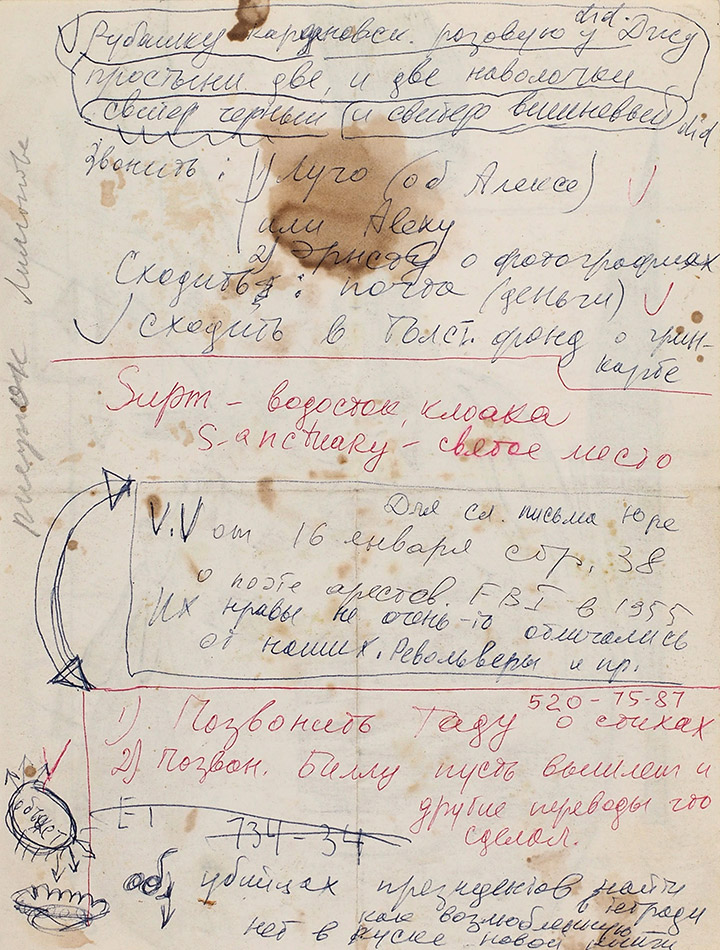 Рубашку кардановск. розовую у Джу did.
простыни две, и две наволочки
свитер черный и свитер вишневый did
Звонить: 1) Луго (об Алексе)
или Алеку
2) Эрнсту о фотографиях
Сходить: почта (деньги)
сходить в Толст. фонд о грин-
карте
рисунок Лимонова
Sump - водосток, клоака
Sanctuary - святое место
Для сл. письма Юре
V.V от 16 января стр. 38
о поэте арестов. FBI в 1955
Их нравы не очень-то отличались
от наших. Револьверы и пр.
520-75-87
1) Позвонить Таду о стихах
2) Позвон. Биллу пусть вышлет и
другие переводы что
сделал.
E1
734-34
объект
об убийцах президентов найти
в тетради
как возлюбленную
нет в куске новой